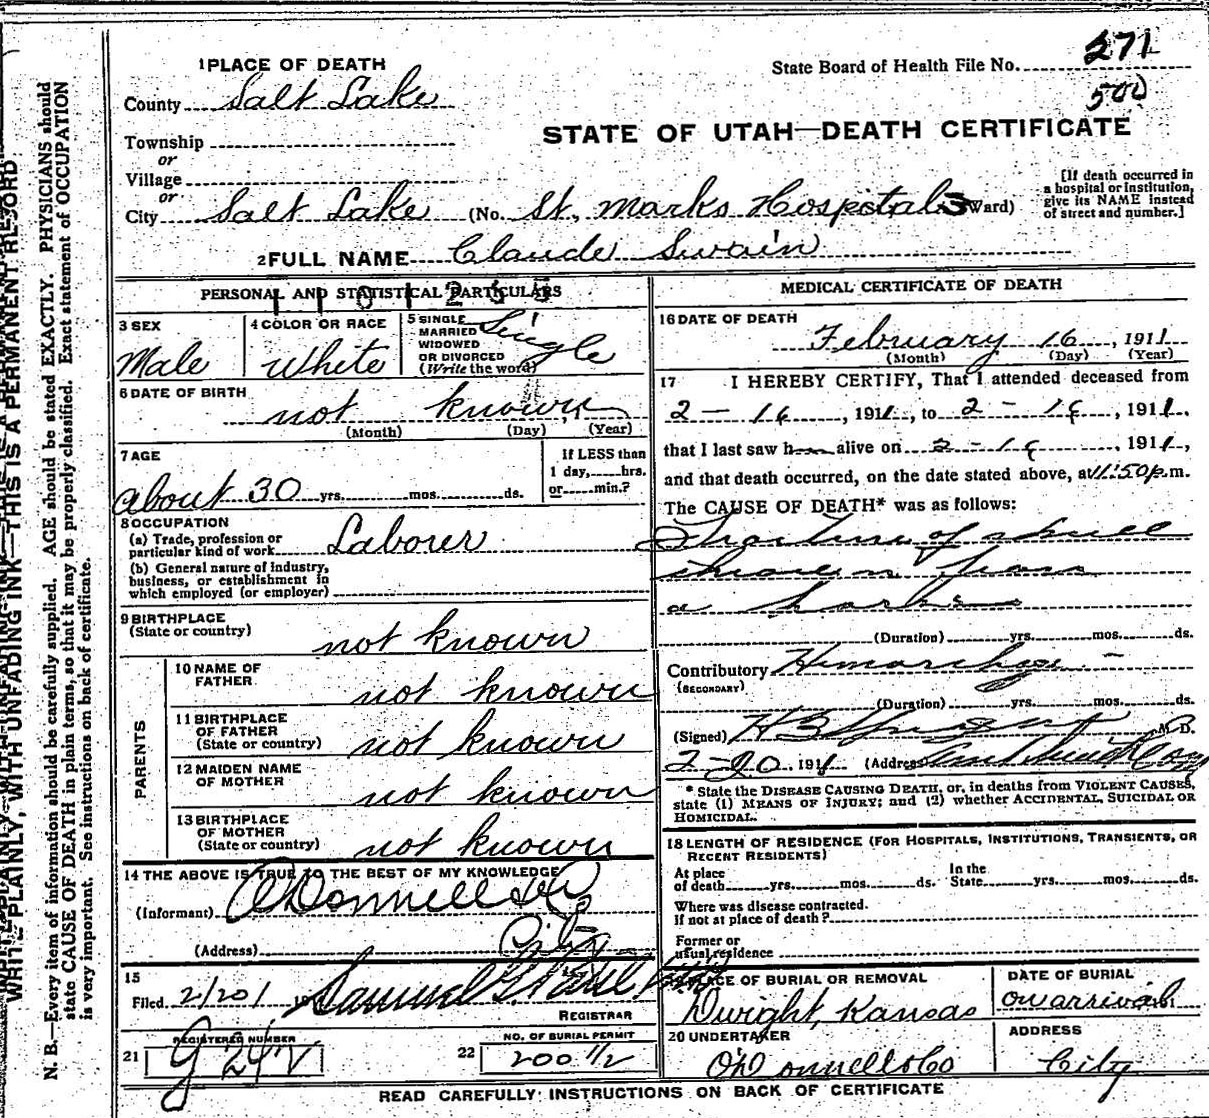 271
State Board of Health File No.
500
1 PLACE OF DEATH
County Salt Lake
STATE OF UTAH—DEATH CERTIFICATE
Township
or
Village
or
City Salt Lake (No. St. Marks Hospital 3 Ward)
[If death occurred in
a hospital or institution,
give its NAME instead
of street and number.]
2 FULL NAME Claude Swain
PERSONAL AND STATISTICAL PARTICULARS
3 SEX
Male
4 COLOR OR RACE
White
5 SINGLE
MARRIED
WIDOWED
OR DIVORCED
(Write the word)
Single
6 DATE OF BIRTH
not known
(Month) (Day) (Year)
7 AGE
about 30 yrs. mos. ds.
If LESS than
1 day, hrs.
or min.?
8 OCCUPATION
(a) Trade, profession or
particular kind of work Laborer
(b) General nature of industry,
business, or establishment in
which employed (or employer)
9 BIRTHPLACE
(State or country) not known
PARENTS
10 NAME OF
FATHER not known
11 BIRTHPLACE
OF FATHER
(State or country) not known
12 MAIDEN NAME
OF MOTHER not known
13 BIRTHPLACE
OF MOTHER
(State or country) not known
14 THE ABOVE IS TRUE TO THE BEST OF MY KNOWLEDGE
(Informant) O'Donnell & Co
(Address) City
15
Filed 2/20/ Samuel G.
REGISTRAR
REGISTERED NUMBER
21
NO. OF BURIAL PERMIT
22 200 1/2
MEDICAL CERTIFICATE OF DEATH
16 DATE OF DEATH
February 16, 1911
(Month) (Day) (Year)
17 I HEREBY CERTIFY, That I attended deceased from
2-16, 1911, to 2-16, 1911,
that I last saw h alive on 2-16, 1911,
and that death occurred, on the date stated above, at 11:50 p.m.
The CAUSE OF DEATH* was as follows:
Fracture of skull
thrown from
a horse
(Duration) yrs. mos. ds.
Contributory Hemorrhage
(SECONDARY)
(Duration) yrs. mos. ds.
(Signed) M.D.
2-20 1911 (Address)
* State the DISEASE CAUSING DEATH, or, in deaths from VIOLENT CAUSES,
state (1) MEANS OF INJURY; and (2) whether ACCIDENTAL, SUICIDAL OR
HOMICIDAL.
18 LENGTH OF RESIDENCE (FOR HOSPITALS, INSTITUTIONS, TRANSIENTS, OR
RECENT RESIDENTS)
At place In the
of death yrs. mos. ds. State yrs. mos. ds.
Where was disease contracted.
If not at place of death?
Former or
usual residence
PLACE OF BURIAL OR REMOVAL
Dwight, Kansas
DATE OF BURIAL
on arrival
20 UNDERTAKER
O'Donnell & Co
ADDRESS
City
READ CAREFULLY INSTRUCTIONS ON BACK OF CERTIFICATE
WRITE PLANLY, WITH UNFADING INK—THIS IS A PERMANENT RECORD
N. B.—Every item of information should be carefully supplied. AGE should be stated EXACTLY. PHYSICIANS should
state CAUSE OF DEATH in plain terms, so that it may be properly classified. Exact statement of OCCUPATION
is very important. See instructions on back of certificate.